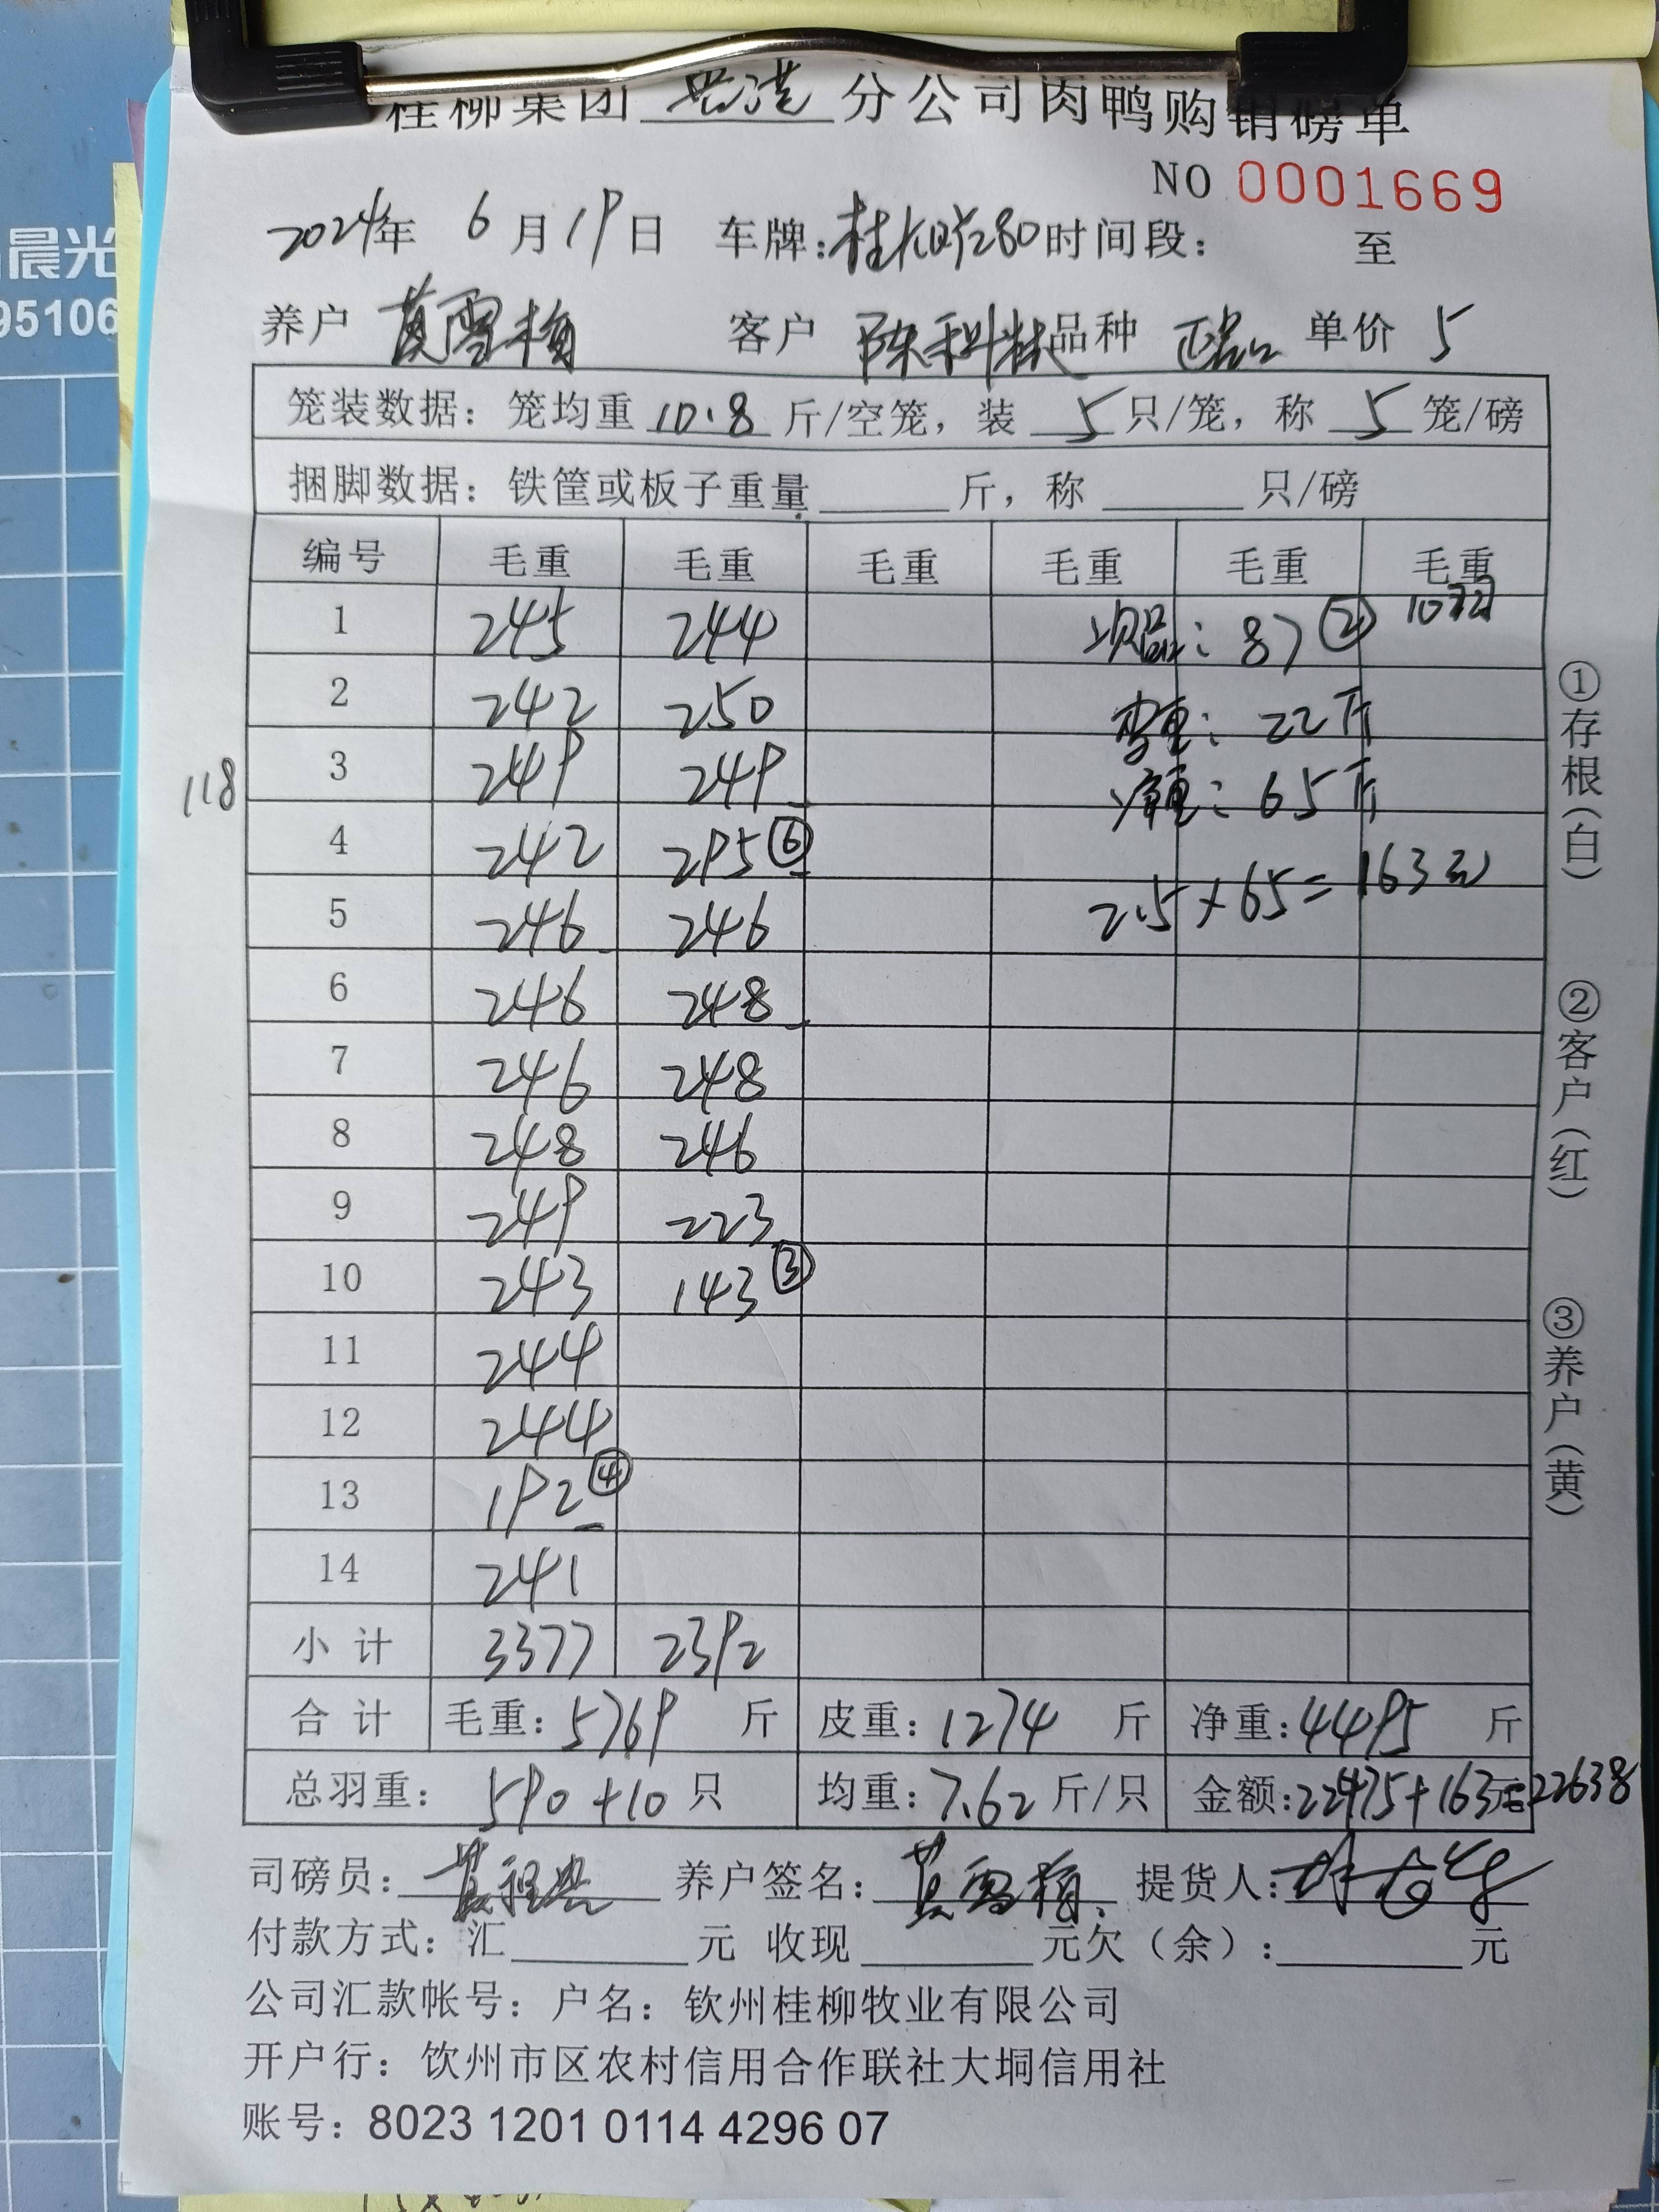 桂柳集团 分公司肉鸭购销磅单
NO 0001669
2024年 6月19日 车牌: 280 时间段: 至
养户 莫雪梅 客户 陈科 品种 正品 单价 5
笼装数据: 笼均重 10.8 斤/空笼, 装 5 只/笼, 称 5 笼/磅
捆脚数据: 铁筐或板子重量 斤, 称 只/磅
编号 毛重 毛重 毛重 毛重 毛重 毛重
1 245 244 次品: 87 ② 10羽
2 242 250 皮重: 22斤
118 3 249 249 净重: 65斤
4 242 295 ⑥
5 246 246 2.5×65=163元
6 246 248
7 246 248
8 248 246
9 249 223
10 243 143 ③
11 244
12 244
13 192 ④
14 241
小计 3377 2392
合计 毛重: 5769 斤 皮重: 1274 斤 净重: 4495 斤
总羽重: 590+10 只 均重: 7.62 斤/只 金额: 22475+163元=22638
①存根(白)
②客户(红)
③养户(黄)
司磅员: 养户签名: 莫雪梅 提货人:
付款方式: 汇 元 收现 元欠(余): 元
公司汇款帐号: 户名: 钦州桂柳牧业有限公司
开户行: 饮州市区农村信用合作联社大垌信用社
账号: 8023 1201 0114 4296 07
晨光
95106